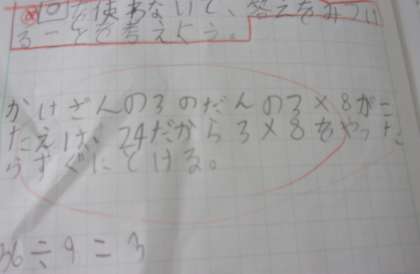 ㋔回を使わないで、答えをみつけ
ることを考えよう。
かけざんの3のだんの3×8がこ
たえは、24だから3×8をやった
らすぐにとける。
36÷9=3